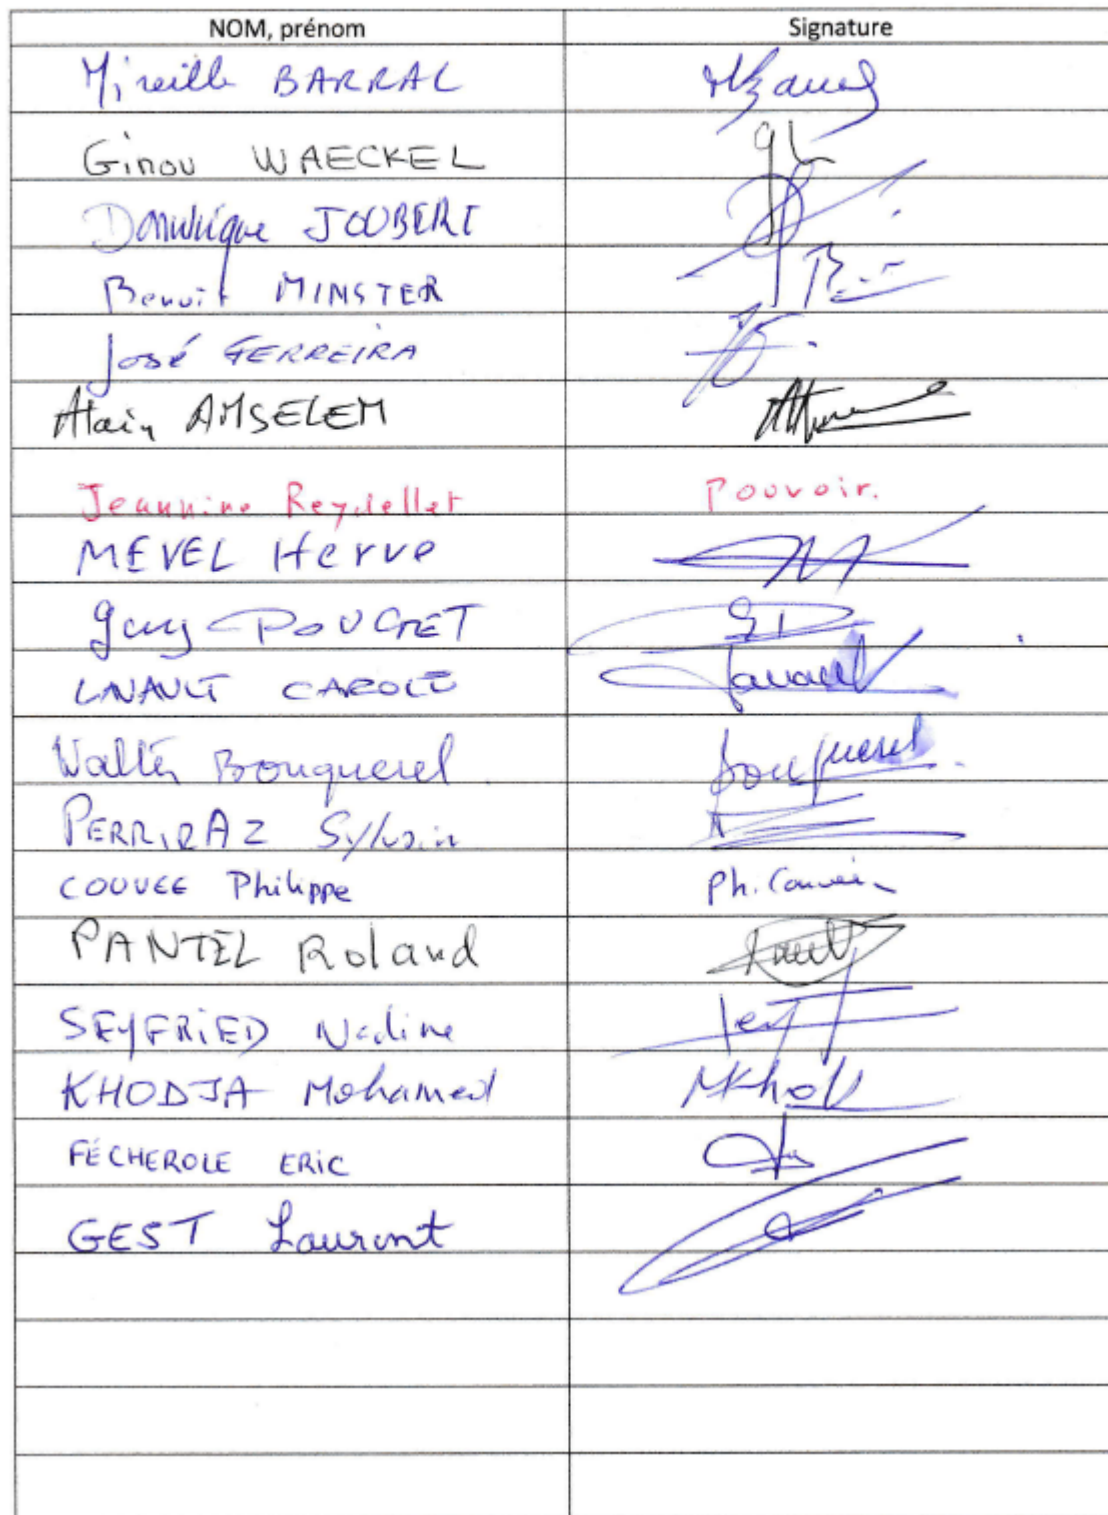 NOM, prénom Signature
Mireille BARRAL
Ginou WAECKEL
Dominique JOUBERT
Benoit MINSTER
José FERREIRA
Alain AMSELEM
Jeannine Reydellet Pouvoir.
MEVEL Herve
Guy POUGNET
LAVAULT CAROLE
Walter Bouquerel Bouquerel
PERRIRAZ Sylvain
COUVEE Philippe Ph. Couvée
PANTEL Roland
SEYFRIED Nadine
KHODJA Mohamed
FÉCHEROLE ERIC
GEST Laurent